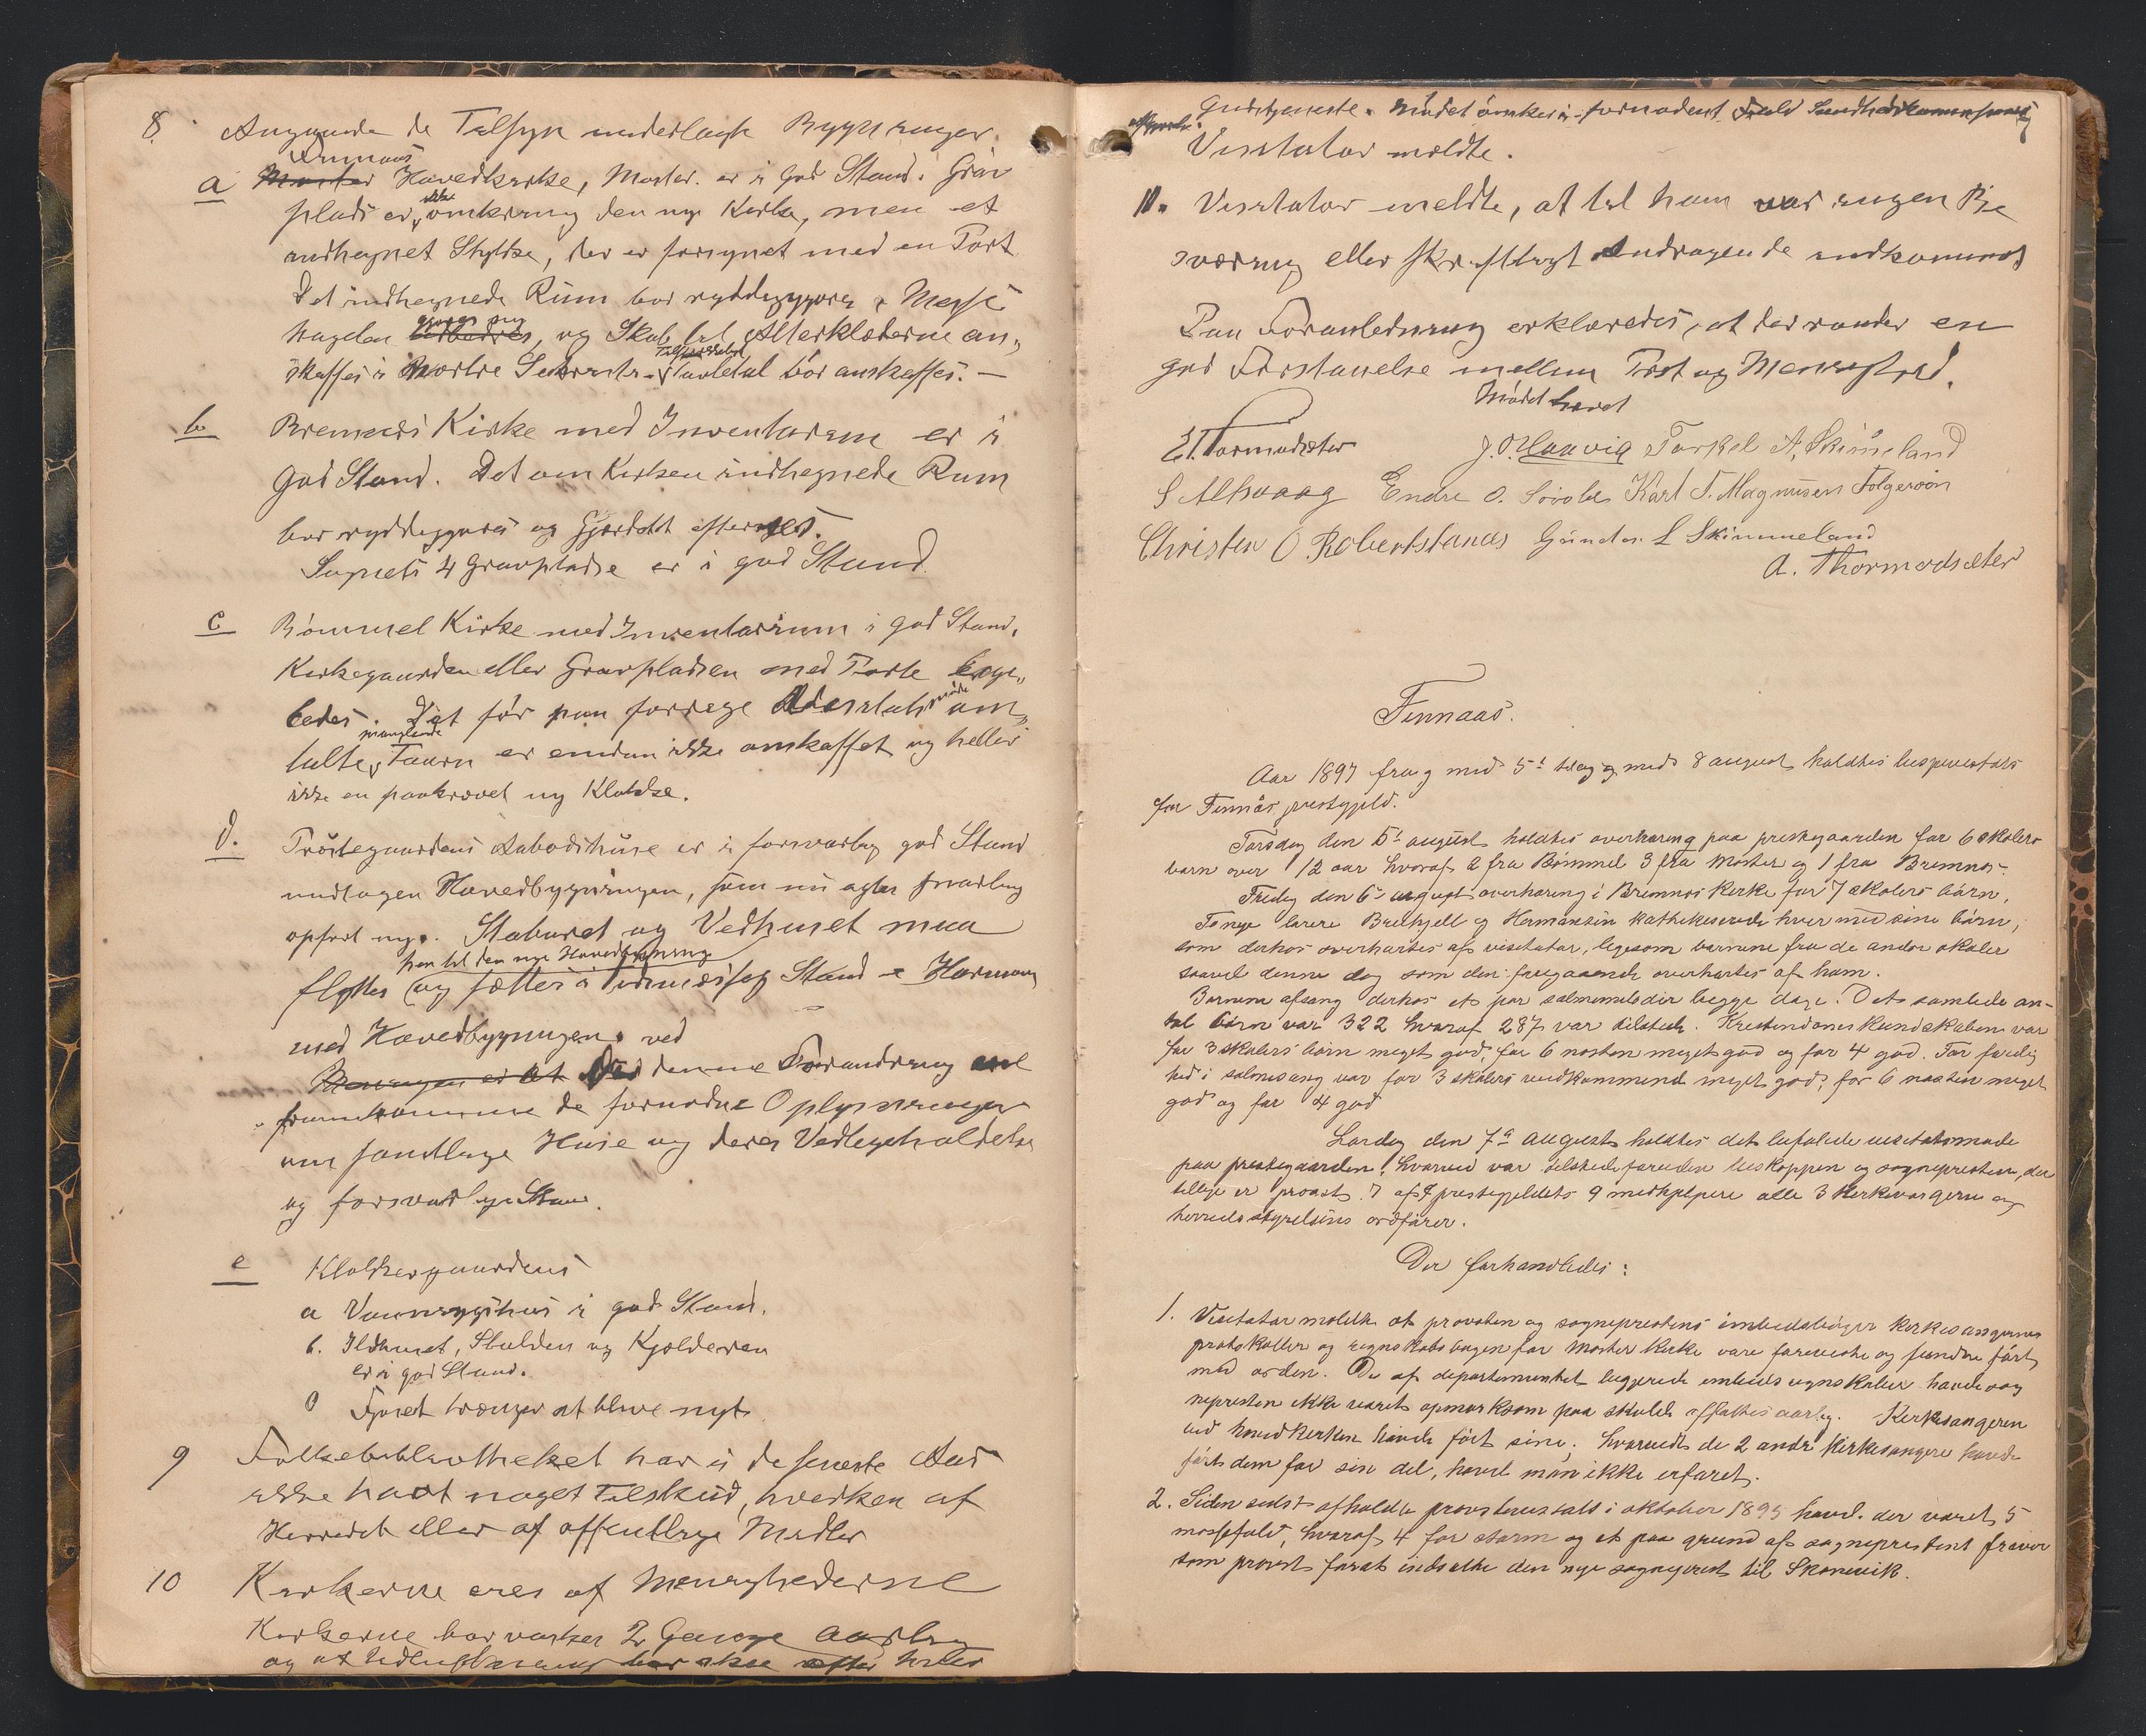 8. Angaaende de Tilsyn underlagte Bygninger.
Finnaas
a Moster Hovedkirke, Moster. er i god Stand. Grav
plads er ikke omkring den nye Kirke, men et
indhegnet Stykke, der er forsynet med en Port
Det indhegnede Rum bør ryddiggjøres, Messe
hagelen og Skab til Alterklæderne an„
skaffes i bør anskaffes. —
b Bremnes Kirke med Inventarium er i
god Stand. Det om Kirken indhegnede Rum
bør ryddiggjøres og Gjerdet eftersees.
Sognets 4 Gravpladse er i god Stand.
c Bømmel Kirke med Inventarium i god Stand.
Kirkegaarden eller Gravpladsen med Porte
ledes. Det før paa forrige Visitats møde om„
talte, manglende Taarn er endnu ikke anskaffet og heller
ikke en paakrævet ny Klokke.
d. Præstegaardens Aabodshuse er i forsvarlig god Stand
undtagen Hovedbygningen, som nu agtes snarlig
opført ny. Staburet og Vedhuset maa
hen til den nye Hovedbygning
flyttes og sættes i Stand - Harmoni
med Hovedbygningen. ved
Meningen er at Ved denne Forandring vil
fremkomme de fornødne Oplysninger
om samtlige Huse og deres Vedligeholdelse
og forsvarlige Stand.
e Klokkergaardens
a Vaaningshus i god Stand.
b. Ildhuset, Stalden og Kjælderen
er i god Stand.
c Fjøset trænger at blive nyt
9 Folkebibliotheket har i de seneste Aar
ikke havt noget Tilskud, hverken af
Herredet eller af offentlige Midler
10 Kirkerne eies af Menighederne
Kirkerne bør vaskes 2 Gange aarlig
og at Udluftning bør ske efter hver
Gudstjeneste. fornødent
Visitator meldte.
11. Visitator meldte, at til ham var ingen Be
sværing eller skriftligt Andragende indkommet
Paa Foranledning erklæredes, at der raader en
god Forstaaelse mellem Prest og Menighed.
Mødet hævet
E. Tormodsæter J. O. Haavig Torkel A. Skimeland
S Alsvaag Endre O. Karl T. Magnusen Folgerøen
Christen O Robertstanæs Gunder L Skimmeland
A. Thormodsæter
Finnaas.
Aar 1897 fra og med 5te til og med 8 august holdtes bispevisitats
for Finnås prestegjeld.
Torsdag den 5te august holdtes overhøring paa prestegaarden for 6 skolers
børn over 12 aar hvoraf 2 fra Bømmel 3 fra Moster og 1 fra Bremnes.
Fredag den 6te august overhøring i Bremnes kirke for 7 skolers børn.
To nye lærere Brekhjell og Hermansen kathekiserede hver med sine børn,
som derhos overhørtes af visitator, ligesom børnene fra de andre skoler
saavel denne dag som den foregaaende overhørtes af ham.
Børnene afsang derhos et par salmemelodier begge dage. Det samlede an-
tal børn var 322 hvoraf 287 var tilstede. Kristendomskundskaben var
for 3 skolers børn meget god, for 6 næsten meget god og for 4 god. For færdig
hed i salmesang var for 3 skolers vedkommende meget god, for 6 næsten meget
god og for 4 god
Lørdag den 7de august holdtes det befalede visitatsmøde
paa prestegaarden, hvorved var tilstede foruden biskoppen og sognepresten, der
tillige er provst, 7 af prestegjeldets 9 medhjelpere alle 3 kirkeværgerne og
herredsstyrelsens ordfører.
Der forhandledes:
1. Visitator meldte at provsten og sogneprestens embedsbøger kirkesangernes
protokoller og regnskabsbogen for Moster kirke vare foreviste og fundne ført
med orden. De af departementet embeds havde sog
nepresten ikke været opmærksom paa skulde affattes aarlig. Kirkesangeren
ved hovedkirken havde ført sine; hvorvidt de 2 andre kirkesangere havde
ført dem for sin del, havde man ikke erfaret.
2. Siden sidst afholdte provstevisitats i oktober 1895 havde der været 5
messefald, hvoraf 4 for storm og et paa grund af sogneprestens fravær
som provst for at indsætte den nye sogneprest til Skonevik.